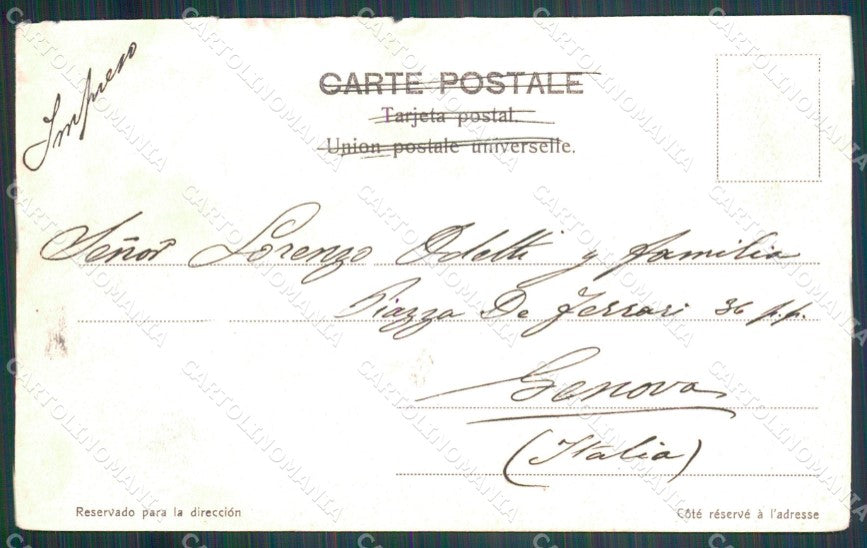 Impreso
CARTE POSTALE
Tarjeta postal.
Union postale universelle.
Señor Lorenzo Odetti y familia
Piazza De Ferrari 36 p.p.
Genova
(Italia)
Reservado para la dirección
Côté réservé à l'adresse
CARTOLINOMANIA